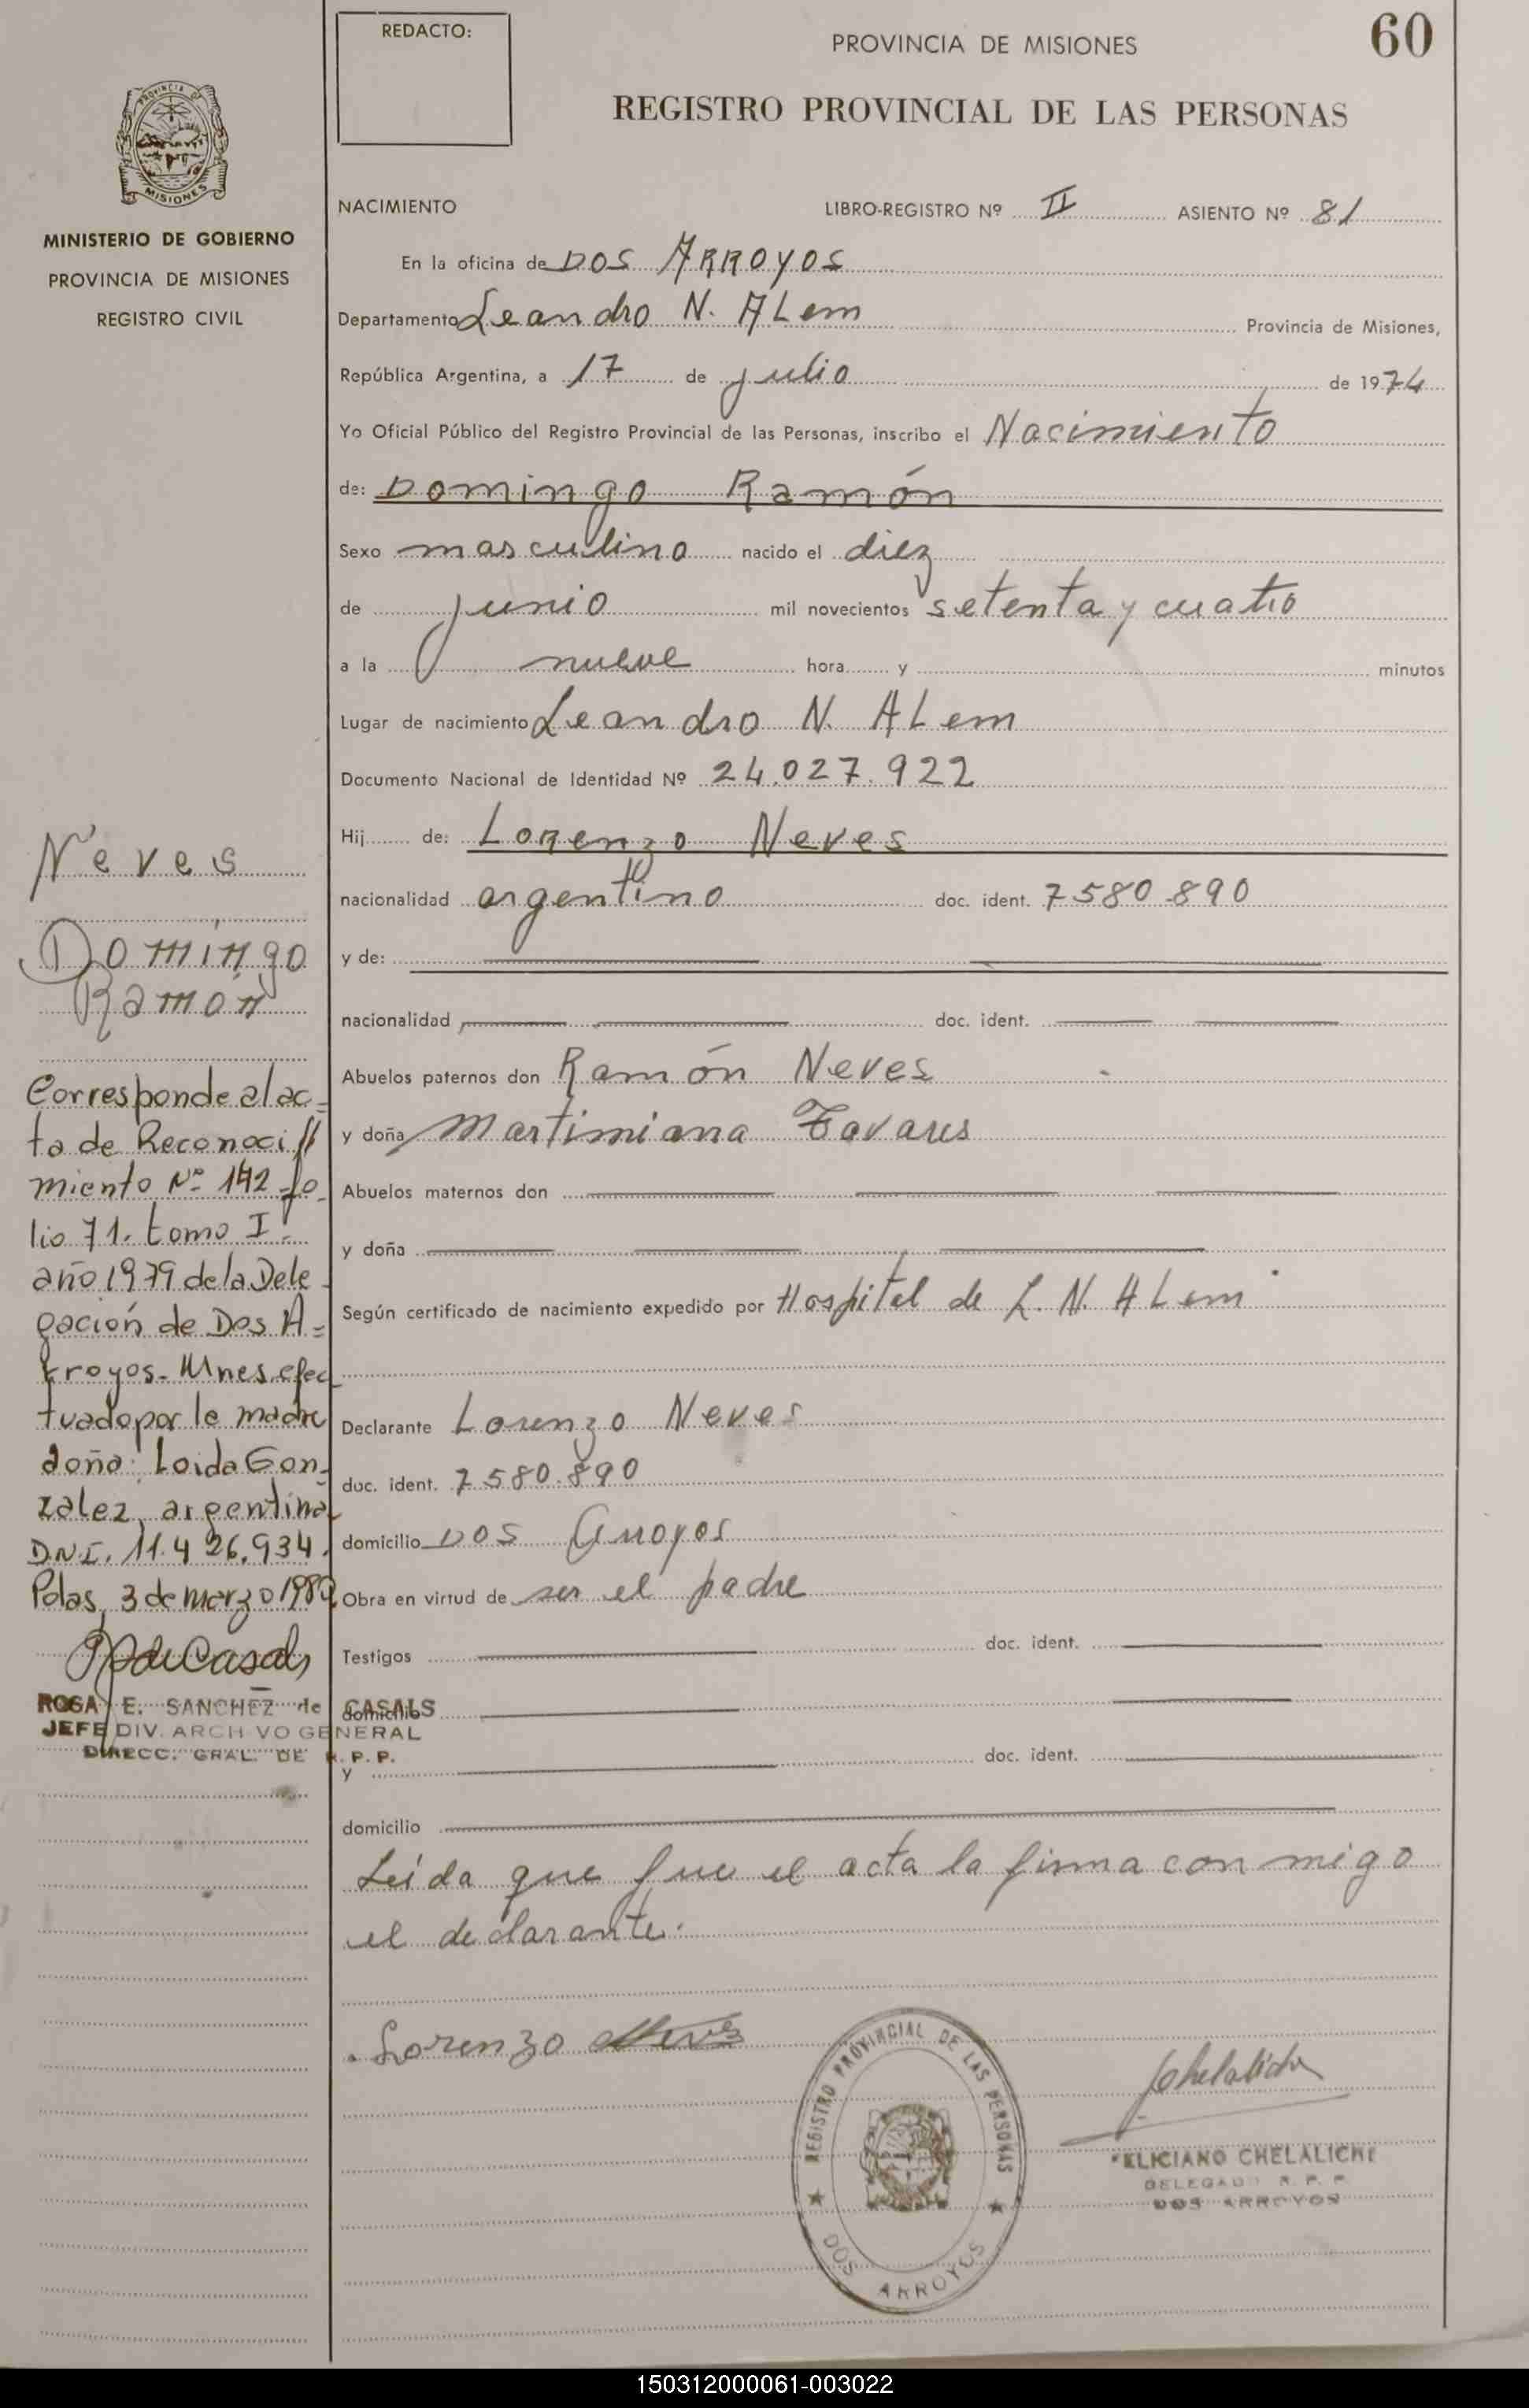 REDACTO:
PROVINCIA DE MISIONES
60
REGISTRO PROVINCIAL DE LAS PERSONAS
PROVINCIA DE
MISIONES
MINISTERIO DE GOBIERNO
PROVINCIA DE MISIONES
REGISTRO CIVIL
NACIMIENTO LIBRO-REGISTRO Nº II ASIENTO Nº 81
En la oficina de DOS ARROYOS
Departamento Leandro N. ALem Provincia de Misiones,
República Argentina, a 17 de julio de 1974
Yo Oficial Público del Registro Provincial de las Personas, inscribo el Nacimiento
de: Domingo Ramón
Sexo masculino nacido el diez
de junio mil novecientos setenta y cuatro
a la nueve hora y minutos
Lugar de nacimiento Leandro N. ALem
Documento Nacional de Identidad Nº 24.027.922
Hij de: Lorenzo Neves
nacionalidad argentino doc. ident. 7580.890
y de:
nacionalidad doc. ident.
Abuelos paternos don Ramón Neves
y doña Martimiana Tavares
Abuelos maternos don
y doña
Según certificado de nacimiento expedido por Hospital de L. N. ALem
Declarante Lorenzo Neves
doc. ident. 7580.890
domicilio DOS Arroyos
Obra en virtud de ser el padre
Testigos doc. ident.
domicilio
y doc. ident.
domicilio
Leída que fue el acta la firma con migo
el declarante.
Lorenzo Neves
Neves
Domingo
Ramón
Corresponde al ac=
ta de Reconoci//
miento Nº 142 fo_
lio 71. tomo I.
año 1979 de la Dele_
gación de Dos A=
rroyos. Mnes. efec_
tuado por la madre
doña: Loida Gon_
zalez, argentina
D.N.I. 11.426.934.
Pdas, 3 de marzo 1980
ROSA E. SANCHEZ de CASALS
JEFE DIV. ARCHIVO GENERAL
DIRECC. GRAL. DE R. P. P.
REGISTRO PROVINCIAL DE LAS PERSONAS
DOS ARROYOS
FELICIANO CHELALICHE
DELEGADO R. P. P.
DOS ARROYOS
150312000061-003022